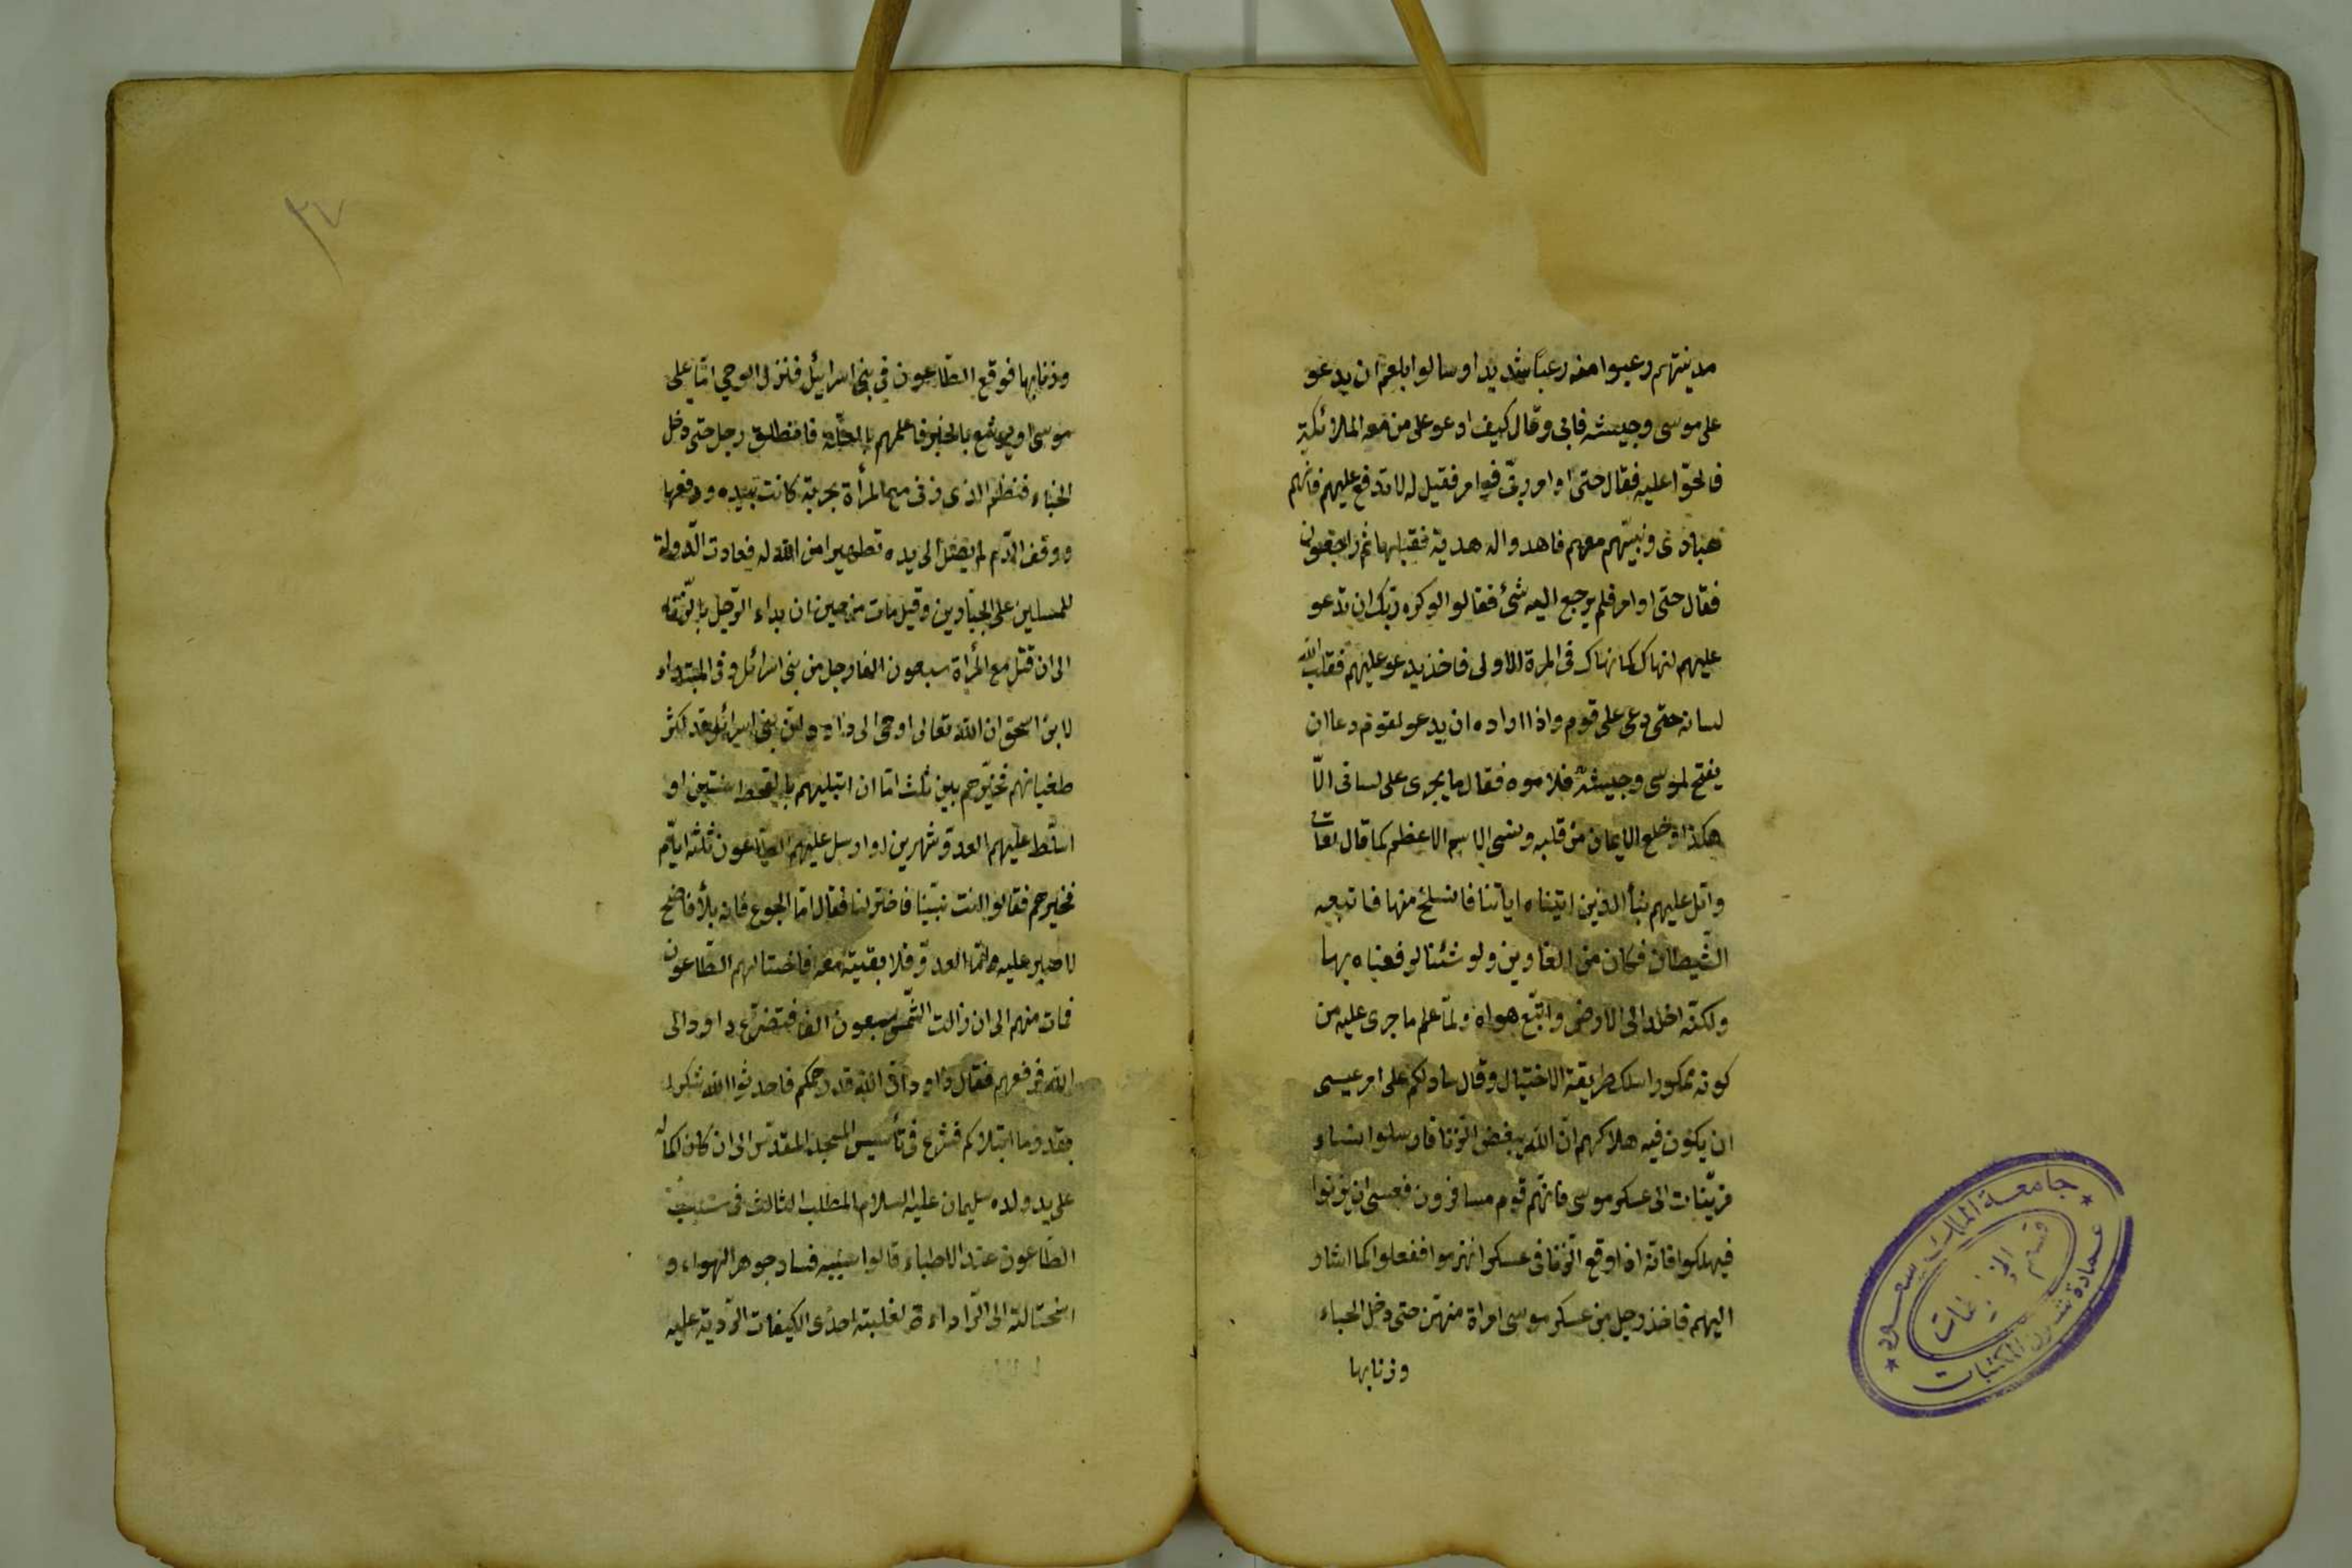 مدينتهم رعبوا منه رعبا شديدا وسالوا بلعم ان يدعو
على موسى وجيشه فابى وقال كيف ادعو على من معه الملائكة
فالحوا عليه فقال حتى اوامر ربى فوامر فقيل له لا تدع عليهم فانهم
عبادى ونبيهم معهم فاهدوا له هدية فقبلها ثم راجعون
فقال حتى اوامر فلم يرجع اليه شئ فقالوا لو كره ربك ان تدعو
عليهم لنهاك كما نهاك فى المرة الاولى فاخذ يدعو عليهم فقلب الله
لسانه حتى دعى على قومه واذا اراده ان يدعو لقومه دعا ان
يفتح لموسى وجيشه فلاموه فقال ما يجرى على لسانى الا
هكذا وخلع الايمان من قلبه ونسى الاسم الاعظم كما قال تعالى
واتل عليهم نبأ الذين اتيناه اياتنا فانسلخ منها فاتبعه
الشيطان فكان من الغاوين ولو شئنا لرفعناه بها
ولكنه اخلد الى الارض واتبع هواه ولما علم ما جرى عليه من
كونه ممكورا سلك طريقة الاختيال وقال سادلكم على امر عيسى
ان يكون فيه هلاكهم ان الله يبغض الزنا فارسلوا نساء
مزينات الى عسكر موسى فانهم قوم مسافرون فعسى ان يزنوا
فيهلكوا فانه اذا وقع الزنا فى عسكر انهزموا ففعلوا كما اشار
اليهم فاخذ رجل من عسكر موسى امراة منهن حتى دخل الخباء
وزنا بها
جامعة الملك سعود
قسم المخطوطات
عمادة شؤون المكتبات
٢٧
وزنا بها فوقع الطاعون فى بنى اسرائيل فنزل الوحى اما على
موسى او يوشع بالخبر فاعلمهم بالحالة فانطلق رجل حتى دخل
الخباء فنظم الذى زنى مع المرأة بحربة كانت بيده ورفعها
ووقف الدم لم يصل الى يده تطهيرا من الله له فعادت الدولة
للمسلمين على الجبارين وقيل مات من حين ان بداء الرجل بالزنا
الى ان قتل مع المرأة سبعون الفا رجل من بنى اسرائل وفى المبتداء
لابن اسحق ان الله تعالى اوحى الى داود ان بنى اسرائل قد كثر
طغيانهم فخيرهم بين ثلث اما ان ابتليهم بالقحط سنتين او
اسلط عليهم العدو شهرين او ارسل عليهم الطاعون ثلثة ايام
فخيرهم فقالوا انت نبينا فاختر لنا فقال اما الجوع فانه بلأ فاضح
لا صبر عليه واما العدو فلا بقية معه فاختار لهم الطاعون
فمات منهم الى ان زالت الشمس سبعون الفا فتضرع داود الى
الله فرفعهم فقال داود ان الله قد رحمكم فاحدثوا الله شكرا
بقدر ما ابتلاكم فشرع فى تأسيس المسجد المقدس الى ان كان اكماله
على يد ولده سليمان عليه السلام المطلب الثالث فى سبب
الطاعون عند الاطباء قالوا سببه فساد جوهر الهواء و
استحالته الى الرداءة لغلبة احدى الكيفات الردية عليه